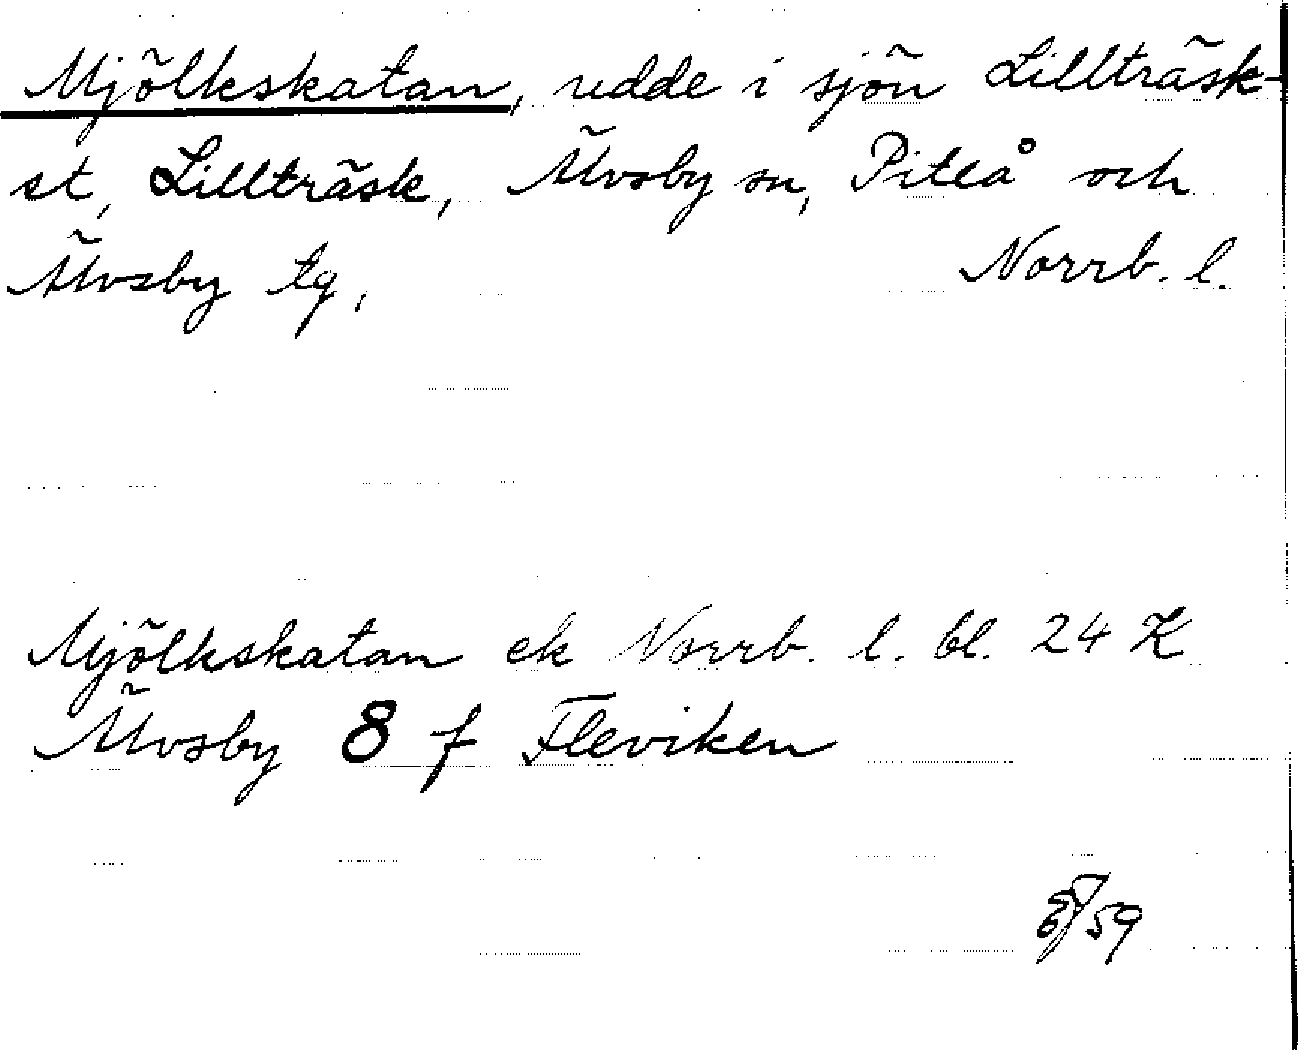 Mjölkskatan, udde i sjön Lillträsk-
et, Lillträsk, Älvsby sn, Piteå och
Älvsby tg, Norrb. l.
Mjölkskatan ek Norrb. l. bl. 24 K
Älvsby 8 f Fleviken
59